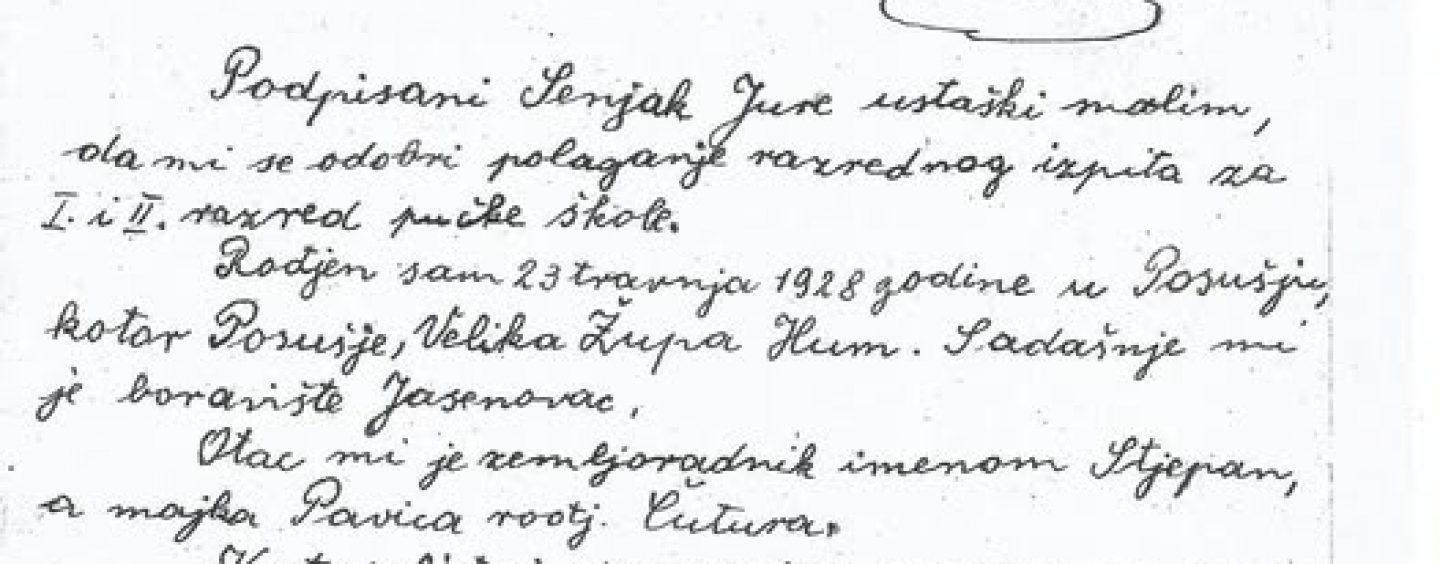 Podpisani Senjak Jure ustaški molim,
da mi se odobri polaganje razrednog izpita za
I. i II. razred pučke škole.
Rodjen sam 23 travnja 1928 godine u Posušju,
kotar Posušje, Velika Župa Hum. Sadašnje mi
je boravište Jasenovac.
Otac mi je zemljoradnik imenom Stjepan,
a majka Pavica rodj. Čutura.